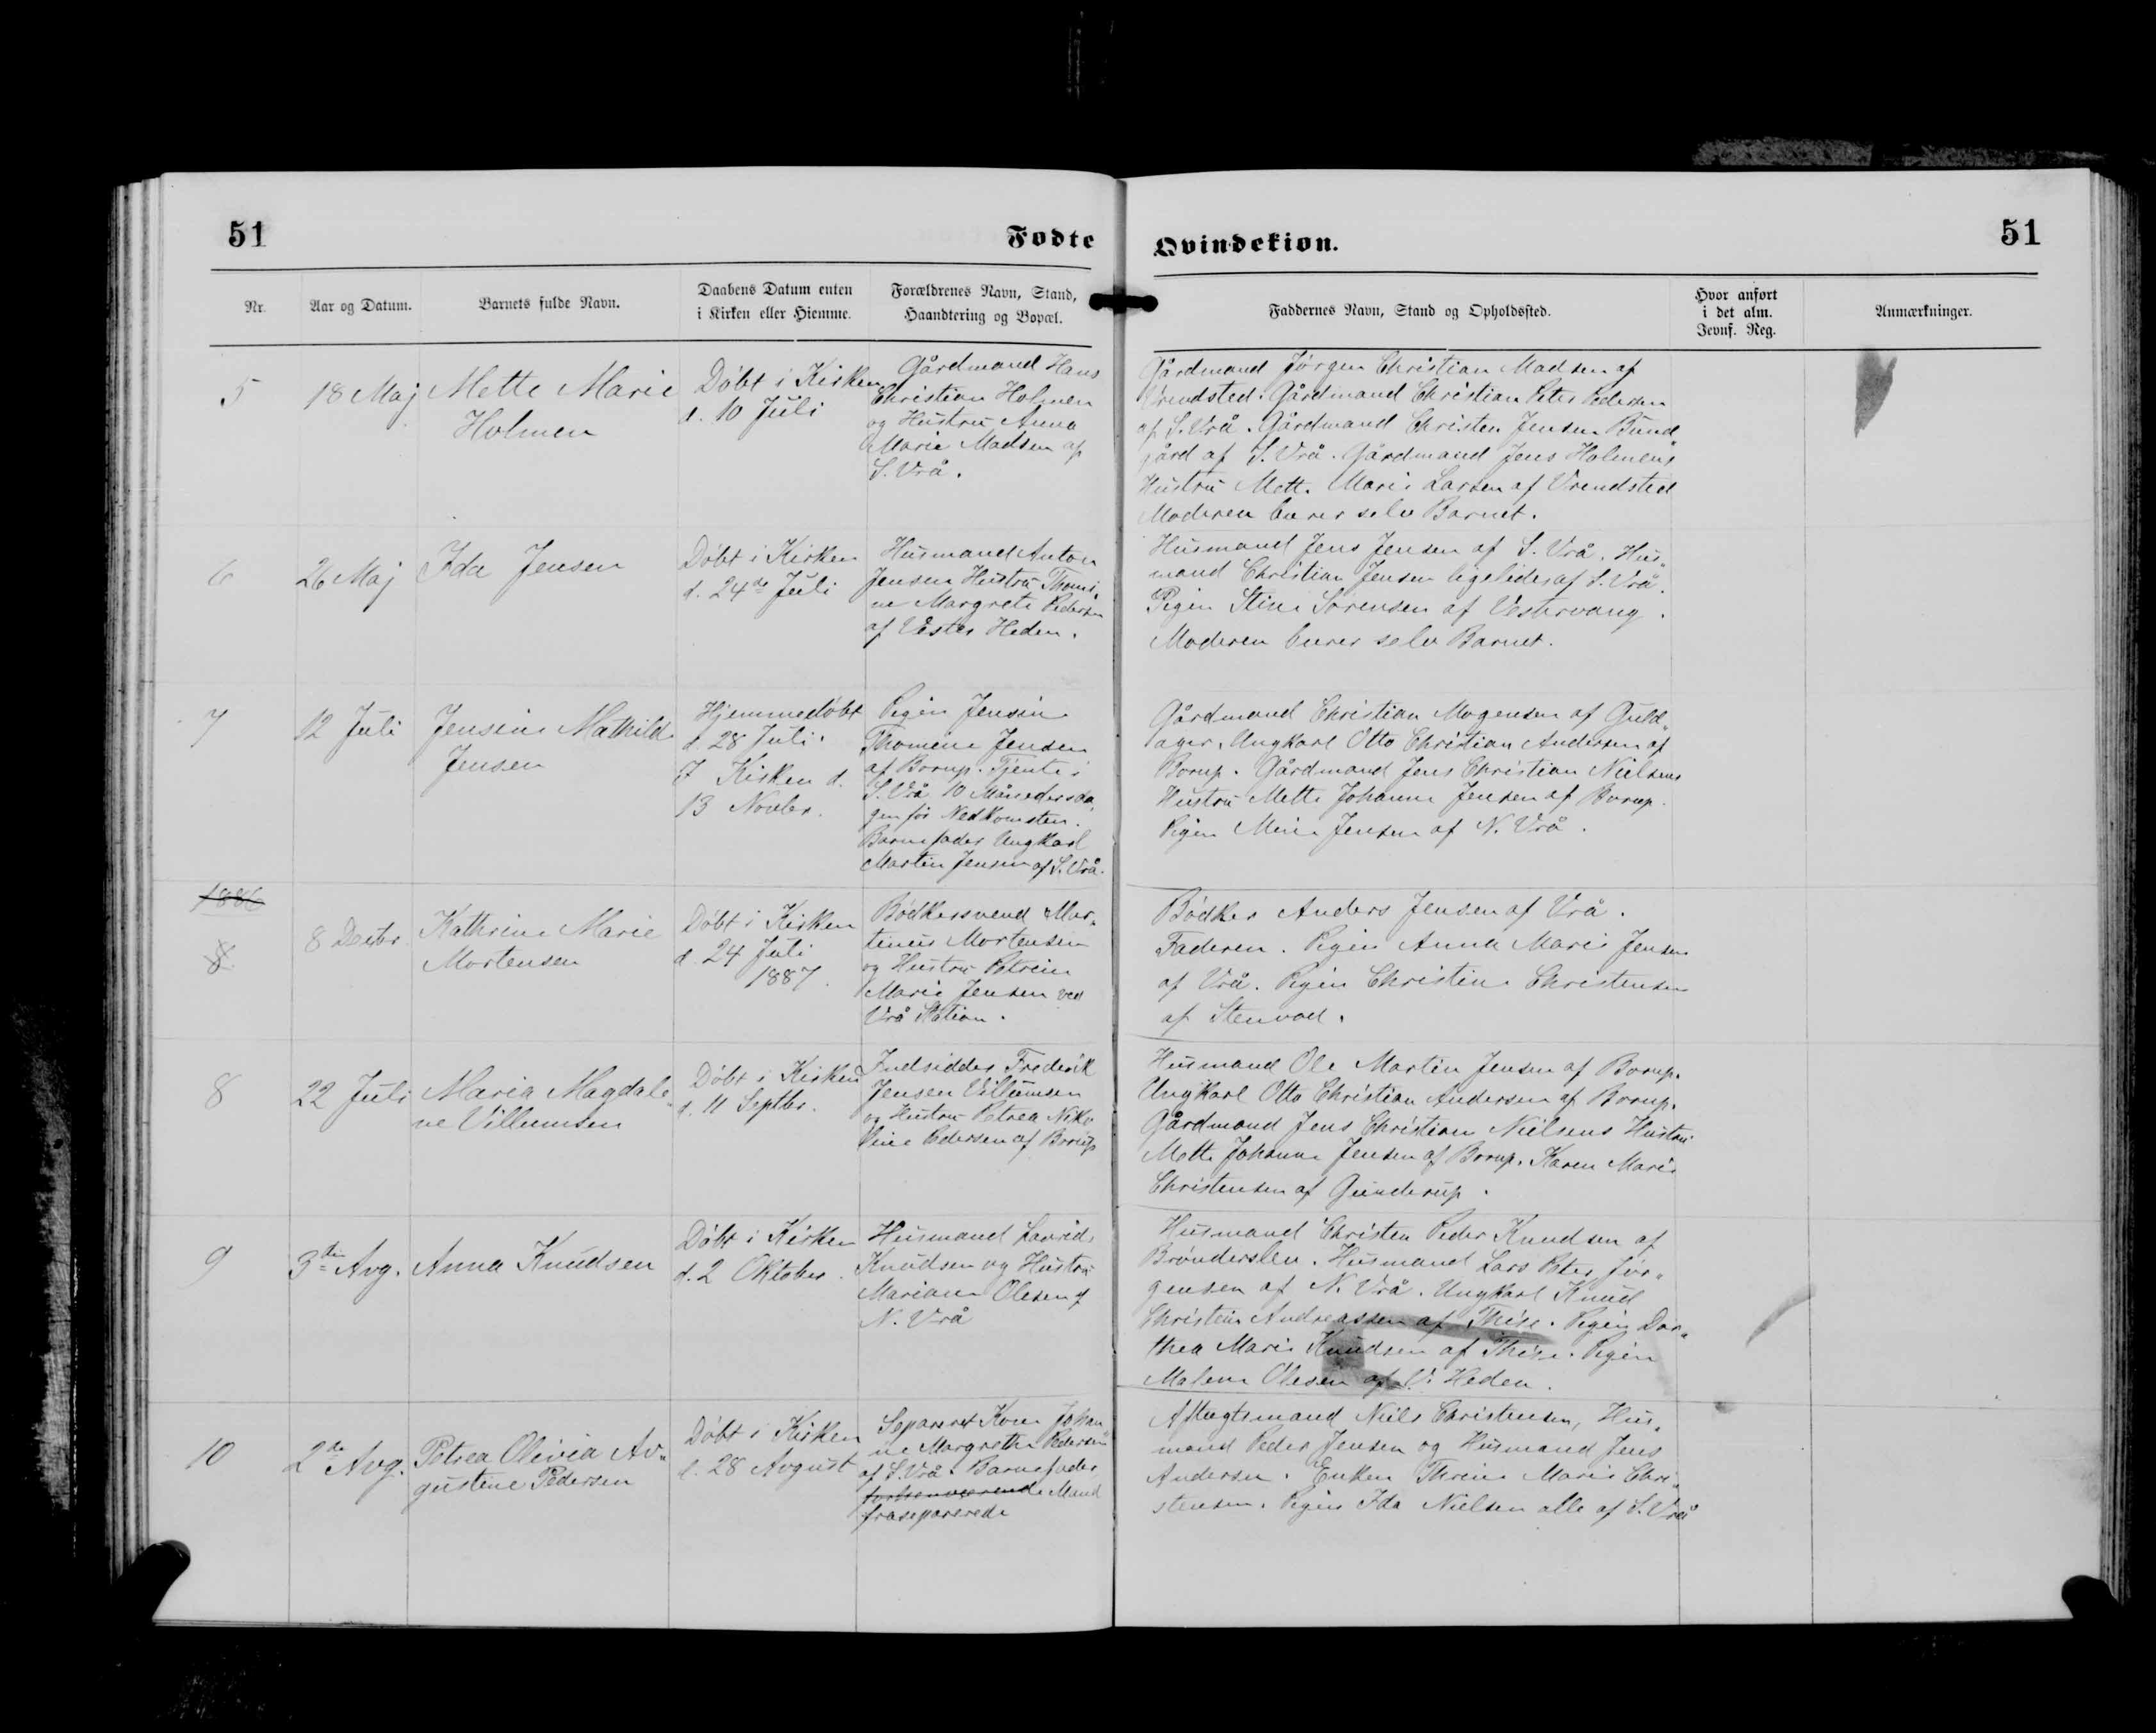 51
Fødte
Qvindekiøn.
51
Nr.
Aar og Datum.
Barnets fulde Navn.
Daabens Datum enten
i Kirken eller Hiemme.
Forældrenes Navn, Stand,
Haandtering og Bopæl.
Faddernes Navn, Stand og Opholdssted.
Hvor anført
i det alm.
Jevnf. Reg.
Anmærkninger.
5
18 Maj
Mette Marie
Holmen
Døbt i Kirken
d. 10 Juli
Gårdmand Hans
Christian Holmen
og Hustru Anna
Marie Madsen af
S. Vrå.
Gårdmand Jørgen Christian Madsen af
Vrendsted. Gårdmand Christian Peter Pedersen
af S. Vrå. Gårdmand Christen Jensen Bund„
gård af S. Vrå. Gårdmand Jens Holmens
Hustru Mette Marie Larsen af Vrendsted
Moderen bærer selv Barnet.
6
26 Maj
Ida Jensen
Døbt i Kirken
d. 24de Juli
Husmand Anton
Jensen Hustru Thomi„
ne Margrete Pedersen
af Vester Heden.
Husmand Jens Jensen af S. Vrå. Hus„
mand Christian Jensen ligeledes af S. Vrå.
Pigen Stine Sørensen af Vestervang.
Moderen bærer selv Barnet.
7
12 Juli
Jensine Mathilde
Jensen
Hjemmedøbt
d. 28 Juli.
I Kirken d.
13 Novbr.
Pigen Jensine
Thomine Jensen
af Borup. Tjente i
S. Vrå 10 Månedersda„
gen før Nedkomsten.
Barnefader Ungkarl
Martin Jensen af S. Vrå.
Gårdmand Christian Mogensen af Guld„
ager. Ungkarl Otto Christian Andersen af
Borup. Gårdmand Jens Christian Nielsens
Hustru Mette Johanne Jensen af Borup.
Pigen Mine Jensen af N. Vrå.
1886
8
8 Decbr
Kathrine Marie
Mortensen
Døbt i Kirken
d. 24 Juli
1887.
Bødkersvend Mar„
tinus Mortensen
og Hustru Petrine
Marie Jensen ved
Vrå Station.
Bødker Anders Jensen af Vrå.
Faderen. Pigen Anna Marie Jensen
af Vrå. Pigen Christine Christensen
af Stenvad.
8
22 Juli
Maria Magdale„
ne Villumsen
Døbt i Kirken
d. 11 Septbr.
Indsidder Frederik
Jensen Villumsen
og Hustru Petrea Niko
line Pedersen af Borup
Husmand Ole Martin Jensen af Borup.
Ungkarl Otto Christian Andersen af Borup.
Gårdmand Jens Christian Nielsens Hustru
Mette Johanne Jensen af Borup. Karen Marie
Christensen af Gunderup.
9
3die Avg.
Anna Knudsen
Døbt i Kirken
d. 2 Oktober.
Husmand Lavrids
Knudsen og Hustru
Mariane Olesen af
N. Vrå
Husmand Christen Peder Knudsen af
Brønderslev. Husmand Lars Peter Jør„
gensen af N. Vrå. Ungkarl Knud
Christein Andreassen af Thise. Pigen Dor„
thea Marie Knudsen af Thise. Pigen
Malene Olesen af V. Heden.
10
2de Avg.
Petrea Olivia Av„
gustine Pedersen
Døbt i Kirken
d. 28 Avgust
Separeret Kone Johan
ne Margrethe Pedersen
af S. Vrå. Barnefader
forhenværende Mand
fraseparerede
Aftægtsmand Niels Christensen, Hus„
mand Peder Jensen og Husmand Jens
Andersen. Enken Thrine Marie Chri„
stensen. Pigen Ida Nielsen alle af S. Vrå